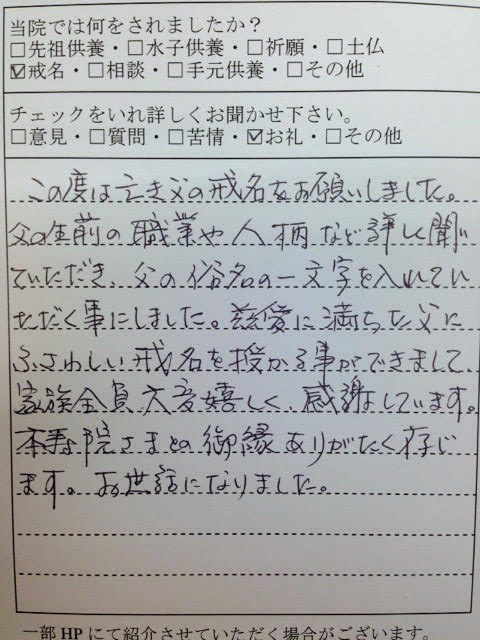 当院では何をされましたか？
□先祖供養・□水子供養・□祈願・□土仏
☑戒名・□相談・□手元供養・□その他
チェックをいれ詳しくお聞かせ下さい。
□意見・□質問・□苦情・☑お礼・□その他
この度は亡き父の戒名をお願いしました。
父の生前の職業や人柄など詳しく聞い
ていただき、父の俗名の一文字を入れてい
ただく事にしました。慈愛に満ちた父に
ふさわしい戒名を授かる事ができまして、
家族全員大変嬉しく、感謝しています。
本寿院さまとの御縁ありがたく存じ
ます。お世話になりました。
一部HPにて紹介させていただく場合がございます。